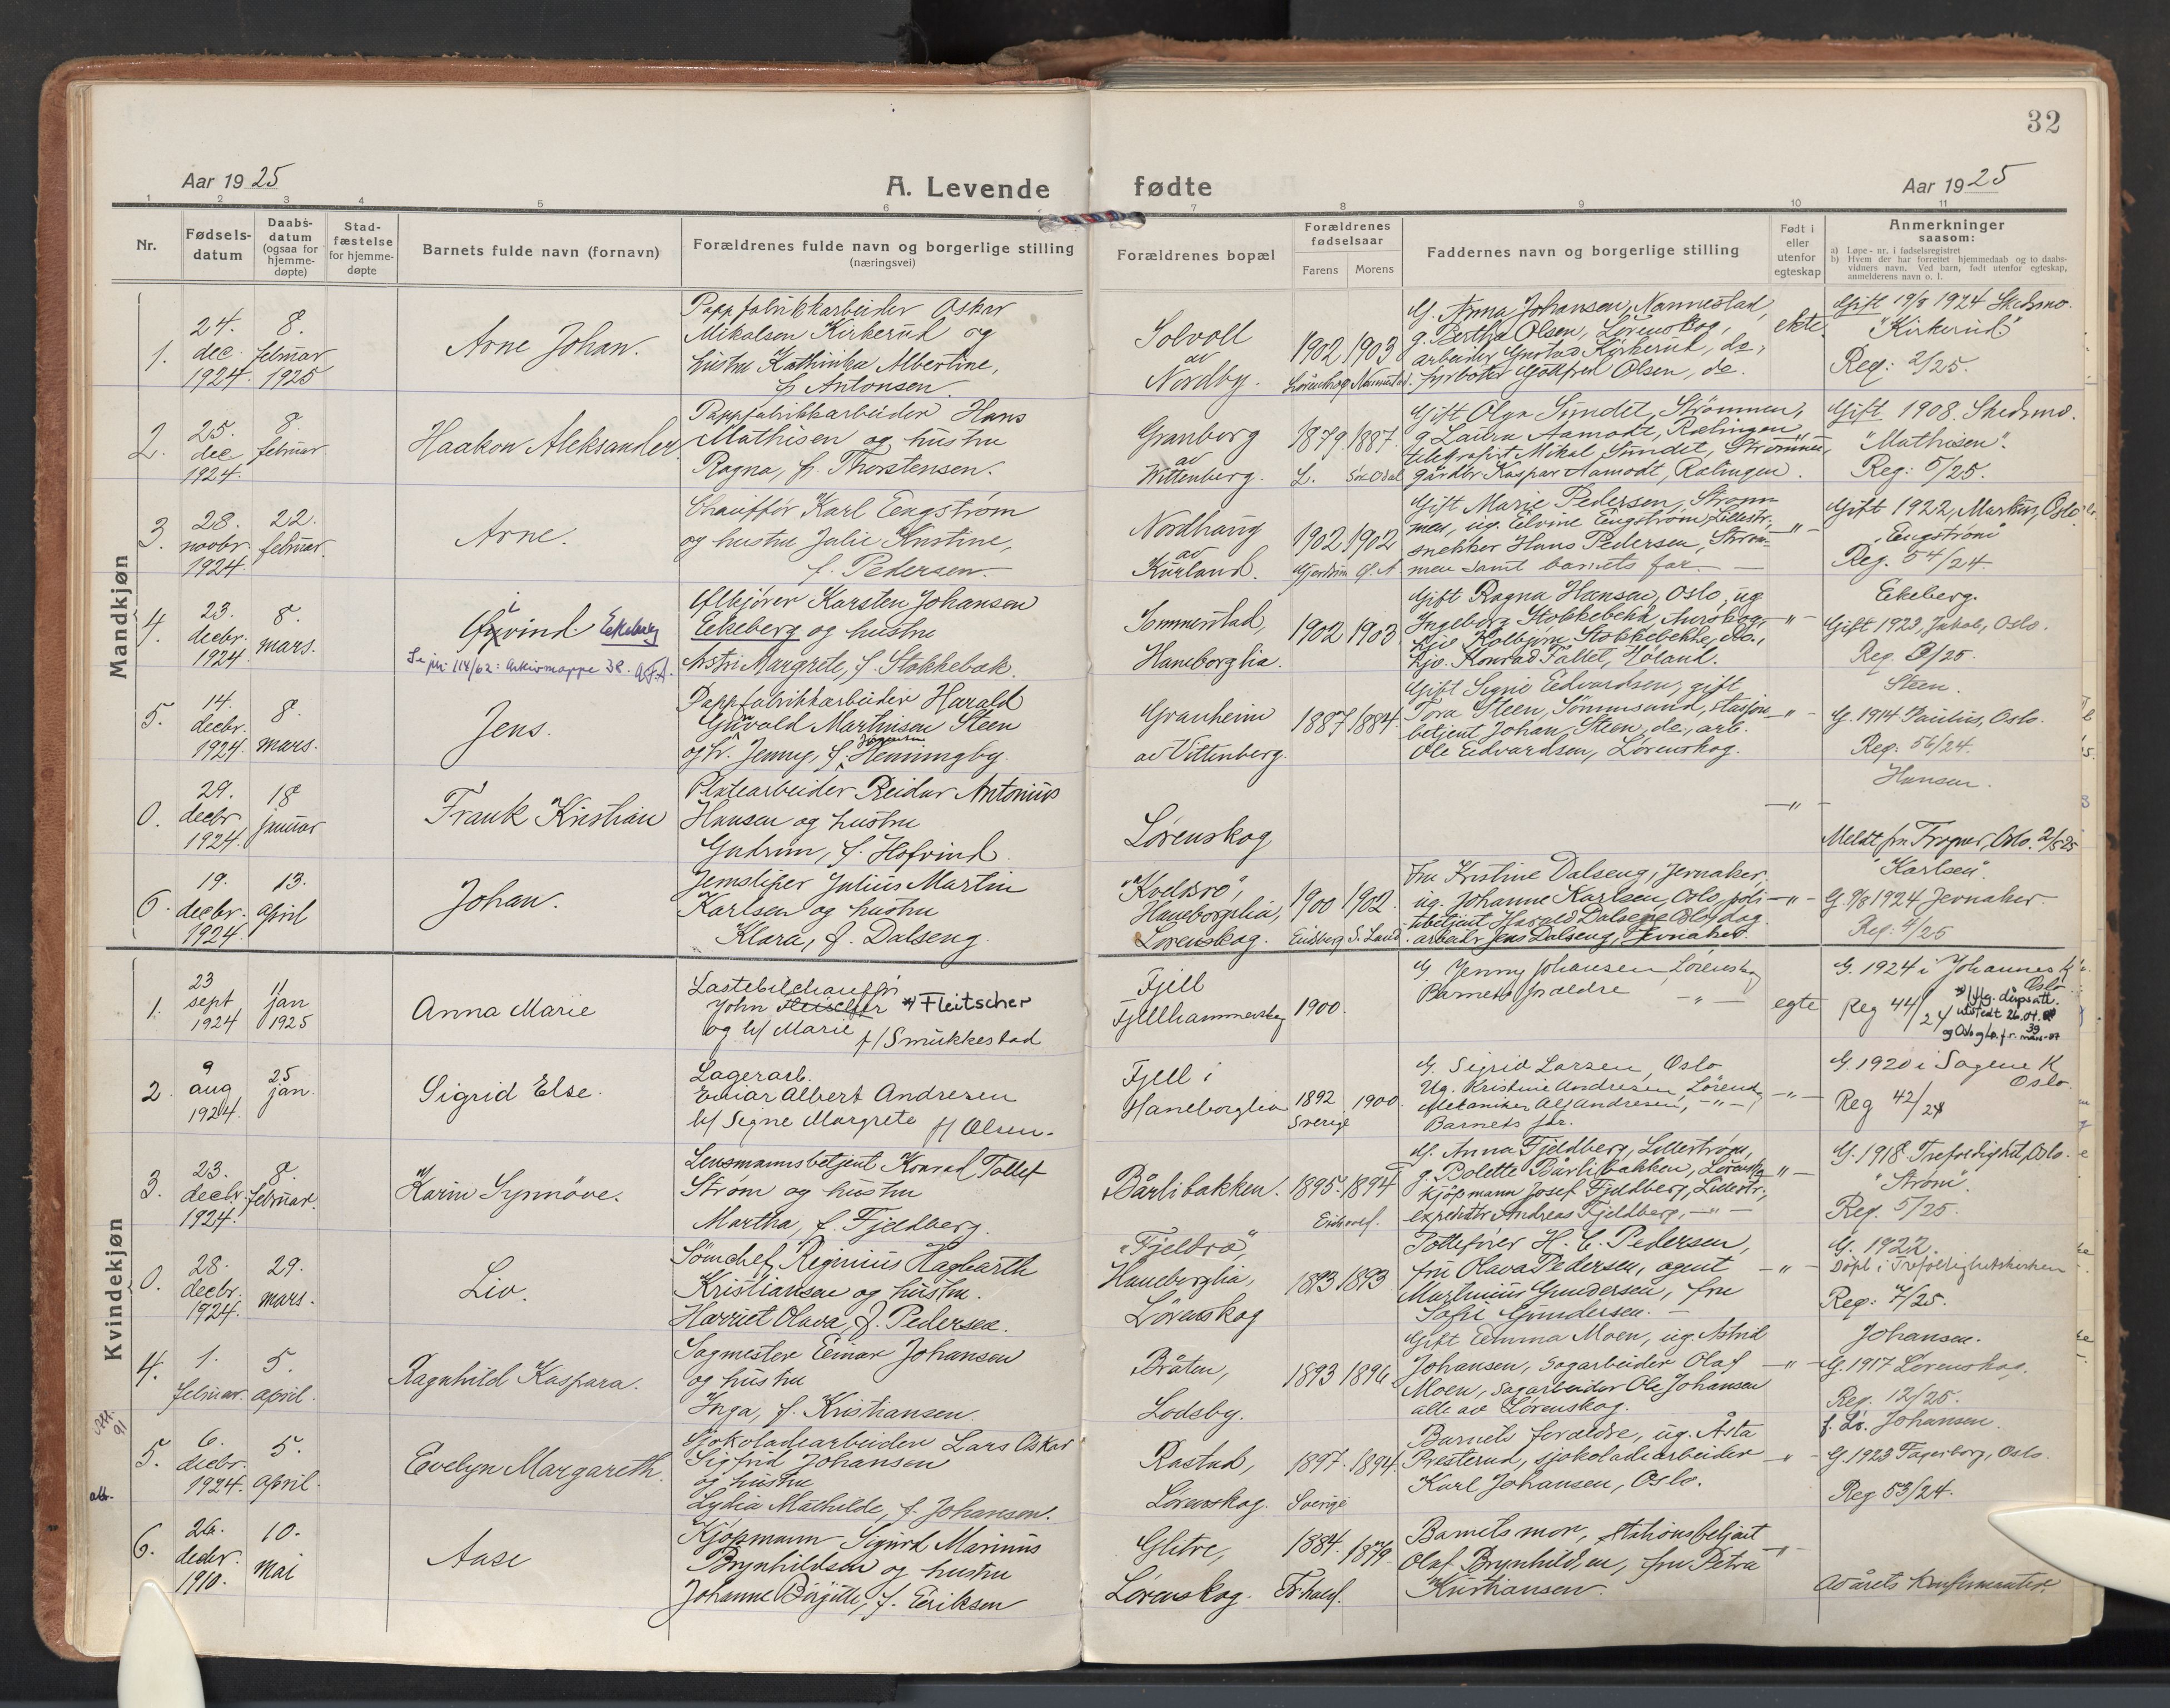 32
Aar 1925
A. Levende fødte
Aar 1925
1 2 3 4 5 6 7 8 9 10 11
Nr.
Fødsels-
datum
Daabs-
datum
(ogsaa for
hjemme-
døpte)
Stad-
fæstelse
for hjemme-
døpte
Barnets fulde navn (fornavn)
Forældrenes fulde navn og borgerlige stilling
(næringsvei)
Forældrenes bopæl
Forældrenes
fødselsaar
Farens
Morens
Faddernes navn og borgerlige stilling
Født i
eller
utenfor
egteskap
Anmerkninger
saasom:
a) Løpe-nr. i fødselsregistret
b) Hvem der har forrettet hjemmedaab og to daabs-
vidners navn. Ved barn, født utenfor egteskap,
anmelderens navn o. l.
Mandkjøn
1.
24.
dec.
1924.
8.
februar
1925
Arne Johan.
Pappfabrikkarbeider Oskar
Mikalsen Kirkerud og
hustru Kathinka Albertine,
f. Antonsen.
Solvoll
av
Nordby.
1902 1903
Lørenskog Nannestad.
G. Anna Johansen, Nannestad,
g. Bertha Olsen, Lørenskog,
arbeider Gustav Kirkerud, do,
fyrbøter Gotfred Olsen, do.
ekte.
Gift 19/8 1924 Skedsmo.
"Kirkerud"
Reg: 2/25.
2.
25.
dec
1924.
8.
februar
Haakon Aleksander
Pappfabrikkarbeider Hans
Mathisen og hustru
Ragna, f. Thorstensen.
Granberg
av
Wittenberg.
1879. 1887.
L. Sør Odal
Gift Olga Sundet, Strømmen,
g. Laura Aamodt, Rælingen,
telegrafist Mikal Sundet, Strømmen,
gårdbr. Kaspar Aamodt, Rælingen.
"
Gift 1908. Skedsmo.
"Mathisen".
Reg: 5/25.
3.
28.
novbr.
1924.
22.
februar.
Arne.
Chauffør Karl Engstrøm
og hustru Julie Kristine,
f. Pedersen.
Nordhaug
av
Kurland.
1902 1902
Gift Marie Pedersen, Strøm-
men, ug. Elvine Engstrøm, Lillestr.,
snekker Hans Pedersen, Strøm-
men samt barnets far.
"
Gift 1922, Markus, Oslo.
"Engstrøm"
Reg. 54/24.
4.
23.
decbr.
1924
8.
mars.
Øivind Eekeberg
Se jnr 114/62: Arkivmappe 38.
Karsten Johansen
Eekeberg og hustru
Astri Margrete, f. Stokkebæk.
Sommerstad,
Haneborglia.
1902 1903
Gift Ragna Hansen, Oslo, ug
Ingeborg Stokkebekk, Aurskog,
Kolbjørn Stokkebekk, do.,
Konrad Tallet, Høland.
"
Eekeberg.
Gift 1923, Jakob, Oslo.
Reg. 3/25.
5.
14.
decbr.
1924
8.
mars.
Jens.
Pappfabrikkarbeider Harald
Gunvald Martinsen Steen
og h. Jenny, f. Jørgensen Henningby.
Granheim
av Vittenberg.
1887 1884
Gift Signe Edvardsen, gift
Tora Steen, Sønnsund, stasjons-
betjent Johan Steen, do., arb.
Ole Edvardsen, Lørenskog.
"
Steen.
G. 1914 Paulus, Oslo.
Reg: 56/24.
0.
29.
decbr
1924.
18
januar
Frank Kristian
Platearbeider Reidar Antonius
Hansen og hustru
Gudrun, f. Hofvind.
Lørenskog
"
Hansen.
Meldt fra Frogner, Oslo. 2/5 25
6.
19.
decbr.
1924.
13.
april
Johan.
Jernsliper Julius Martin
Karlsen og hustru
Klara, f. Dalseng.
"Kveldsro",
Haneborglia,
Lørenskog.
1900 1902.
Eidsberg S. Land.
Fru Kristine Dalseng, Jevnaker,
ug. Johanne Karlsen, Oslo, poli-
tibetjent Harald Dalseng, Oslo, dag-
arbeider Jens Dalseng, Jevnaker.
"
"Karlsen".
G. 9/8 1924 Jevnaker
Reg: 4/25
Kvindekjøn
1.
23
sept
1924
11
jan
1925
Anna Marie
Lastebilchauffør
John Fleischer *) Fleitscher
og h/ Marie f/ Smukkestad
Fjell
Fjellhammersbg
1900.
G. Jenny Johansen, Lørenskog
Barnets forældre — " —
egte
G. 1924 i Johannes K
Oslo.
Reg 44/24
*) Utg. dåpsatt.
utstedt 26.01.
2.
9
aug
1924.
25
jan.
Sigrid Else.
Lagerarb.
Einar Albert Andresen
h/ Signe Margrete f/ Olsen.
Fjell i
Haneborglia
1892 1900.
Sverige
G. Sigrid Larsen, Oslo
Ug. Kristine Andresen, Lørensk.
Mekaniker Alf Andresen, — " —
Barnets far.
"
G. 1920 i Sagene K
Oslo.
Reg 42/24
3.
23.
decbr.
1924.
8.
februar.
Karin Synnøve.
Lensmannsbetjent Konrad Tollef
Strøm og hustru
Martha, f. Fjeldberg.
Bårlibakken.
1895. 1894
Eidsvoll.
G. Anna Fjeldberg, Lillestrøm,
g. Bolette Bårlibakken, Lørensk.
kjøpmann Josef Fjeldberg, Lillestr.,
expeditør Andreas Fjeldberg, — " —
"
G. 1918 Trefoldighet, Oslo.
"Strøm".
Reg. 5/25.
0.
28.
decbr.
1924.
29.
mars.
Liv.
Reginius Hagbarth
Kristiansen og hustru.
Harriet Olava, f. Pedersen.
"Fjeldro",
Haneborglia,
Lørenskog
1893 1893
H. C. Pedersen,
fru Olava Pedersen, agent
Martinius Gundersen, fru
Sofie Gundersen.
"
G. 1922.
Døpt i Trefoldighetskirken
Reg: 7/25.
4.
1.
februar.
5.
april.
Ragnhild Kaspara.
Sagmester Einar Johansen
og hustru
Inga, f. Kristiansen.
Bråten,
Lodsby.
1893 1896
Gift Emma Moen, ug. Astrid
Johansen, sagarbeider Olaf
Moen, sagarbeider Ole Johansen
alle av Lørenskog.
"
Johansen.
G. 1917 Lørenskog.
Reg. 12/25.
5.
6.
decbr.
1924.
5.
april.
Evelyn Margareth.
Sjokoladearbeider Lars Oskar
Sigfrid Johansen
og hustru
Lydia Mathilde, f. Johansen.
Rastad,
Lørenskog.
1897. 1894.
Sverige
Barnets foreldre, ug. Åsta
Presterud, sjokoladearbeider
Karl Johansen, Oslo.
"
Johansen.
G. 1923 Fagerborg, Oslo.
Reg 53/24.
6.
26.
decbr.
1910.
10.
mai
Aase
Kjøpmann Sigurd Marinus
Brynhildsen og hustru
Johanne Birgitte, f. Eriksen
Glitre,
Lørenskog.
1884. 1879.
Fr.hald.
Barnets mor, stationsbetjent
Olaf Brynhildsen, fru Petra
Kristiansen.
"
Av årets konfirmanter.